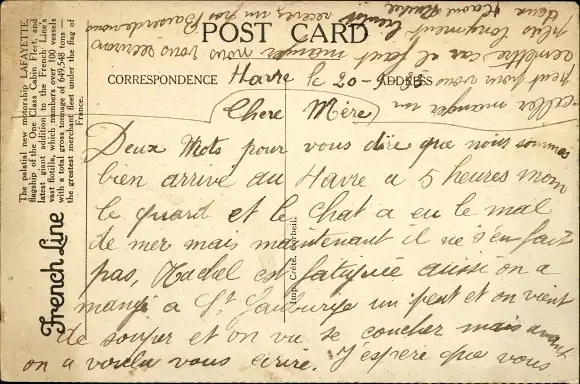 POST CARD
CORRESPONDENCE
ADDRESS
Havre le 20-9.35
Chere Mère
Deux Mots pour vous dire que nous sommes
bien arrivé au Havre a 5 heures mom
le quard et le chat a eu le mal
de mer mais maintenant il ne s'en fait
pas, Rachel est fatiguée aussi on a
mangé a St un peut et on vient
de souper et on va se coucher mais avant
on a voulu vous écrire. J'espere que vous
aller manger un
peut pour vous
remettre car il faut manger nous vous
plus longment recevez un gros Baiser de vos
deux
The palatial new motorship LAFAYETTE,
flagship of the One Class Cabin Fleet, and
latest giant addition to the French Line's
vast flotilla, which numbers over 100 vessels
with a total gross tonnage of 649.548 tons —
the greatest merchant fleet under the flag of
France.
French Line
Imp. Crété. Corbeil.